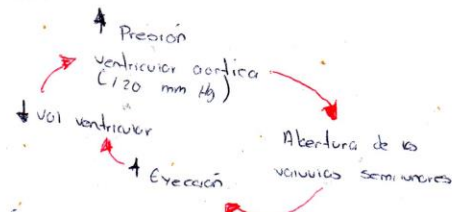 ↑ Presión
ventricular aortica
(120 mm Hg)
↓ Vol ventricular
Abertura de las
valvulas semilunares
↑ Eyección